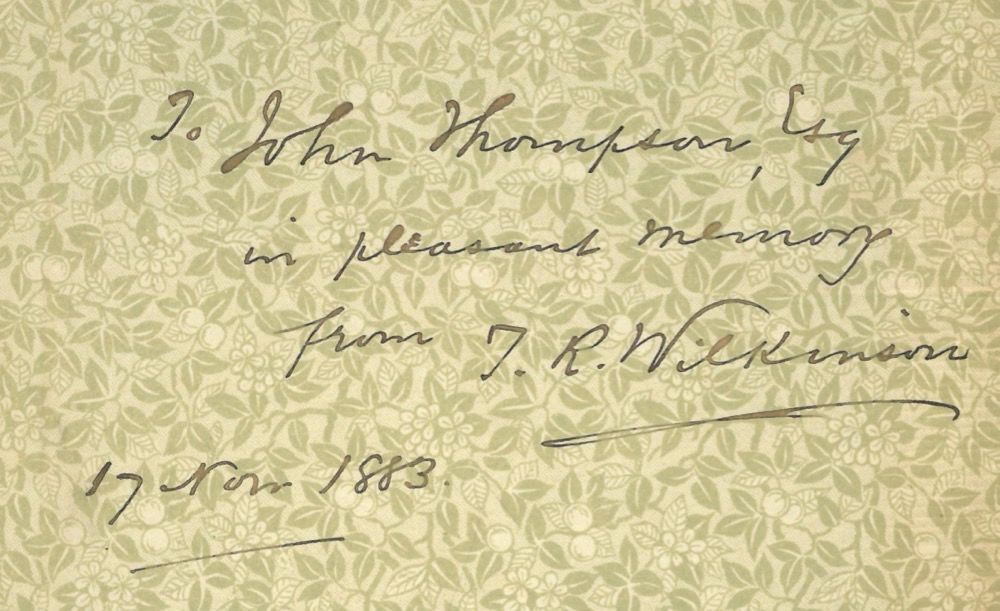 To John Thompson, Esq
in pleasant memory
from T. R. Wilkinson
17 Nov 1883.